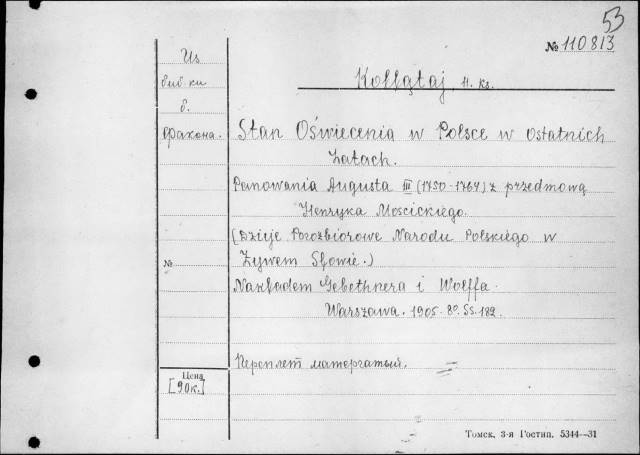 53
№ 110813
Из
биб-ки
б.
Фахона.
Kołłątaj H. Ks.
Stan Oświecenia w Polsce w ostatnich
Latach.
Panowania Augusta III (1750-1764) z przedmową
Henryka Mościckiego.
(Dzieje Porozbiorowe Narodu Polskiego w
Żywem Słowie.)
№
Nakładem Gebethnera i Wolffa
Warszawa. 1905. 8º. SS. 182.
Переплет матерчатый.
Цена
[90к.]
Томск, 3-я Гостип. 5344—31